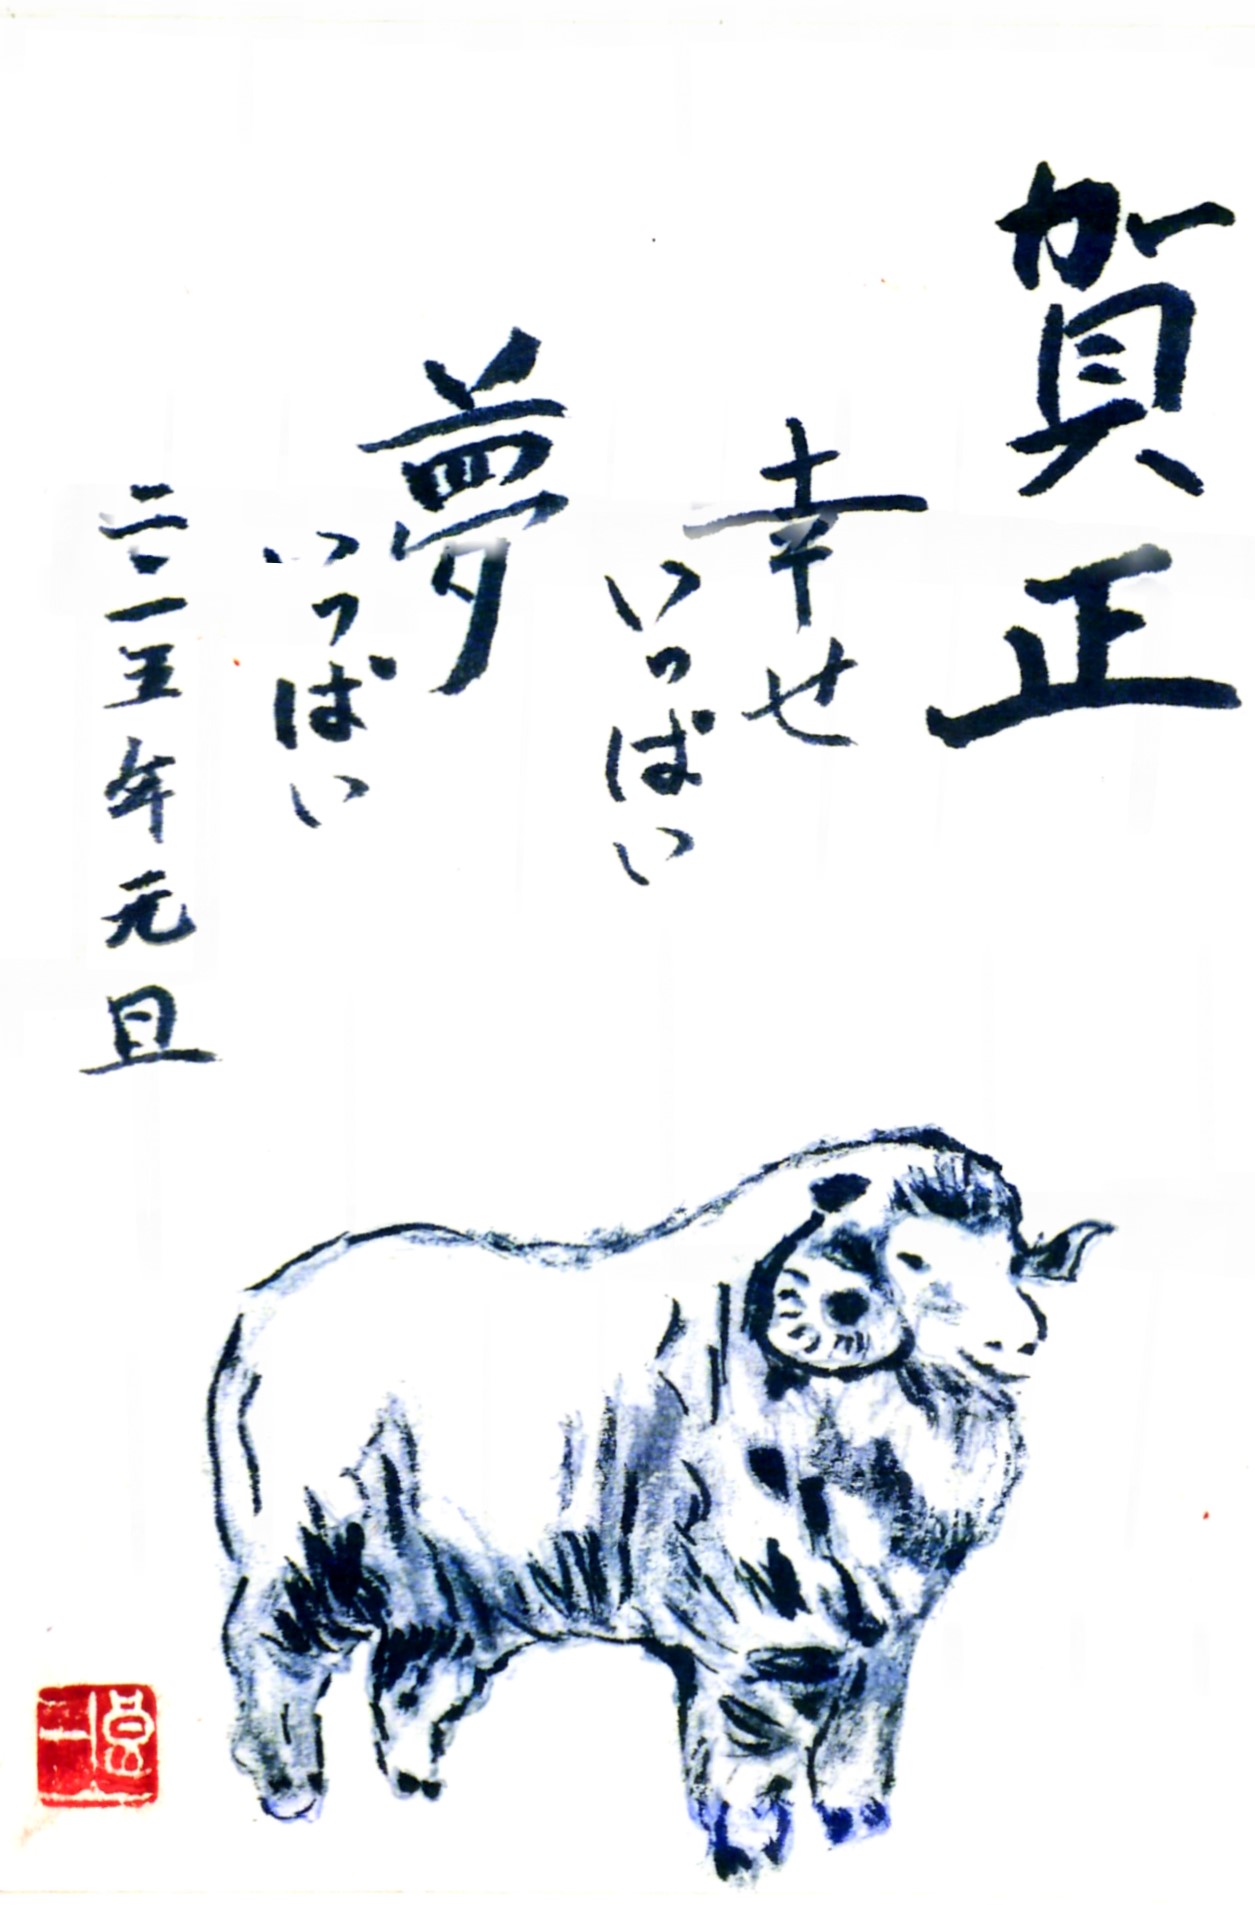 賀正
幸せ
いっぱい
夢
いっぱい
二〇一五年元旦